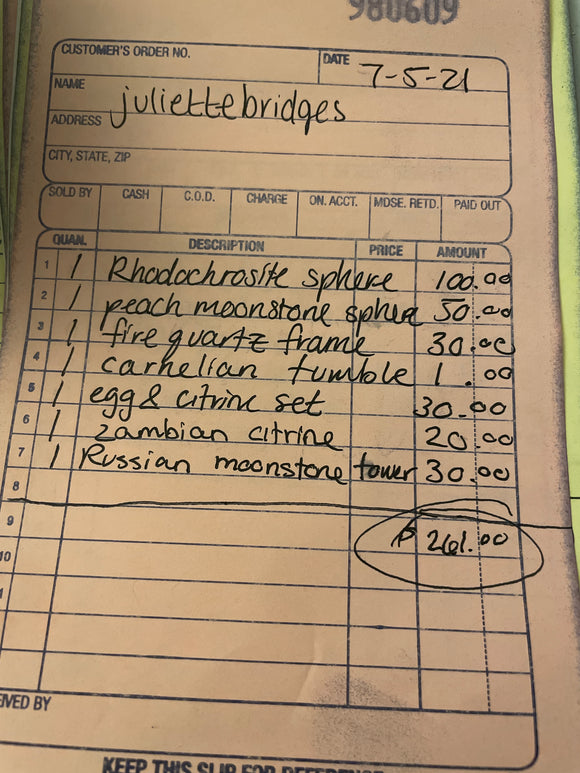 980609
CUSTOMER'S ORDER NO. DATE 7-5-21
NAME juliettebridges
ADDRESS
CITY, STATE, ZIP
SOLD BY CASH C.O.D. CHARGE ON. ACCT. MDSE. RETD. PAID OUT
QUAN. DESCRIPTION PRICE AMOUNT
1 1 Rhodochrosite sphere 100.00
2 1 peach moonstone sphere 50.00
3 1 fire quartz frame 30.00
4 1 carnelian tumble 1.00
5 1 egg & citrine set 30.00
6 1 zambian citrine 20.00
7 1 Russian moonstone tower 30.00
8
9 $261.00
10
KEEP THIS SLIP FOR REFERENCE